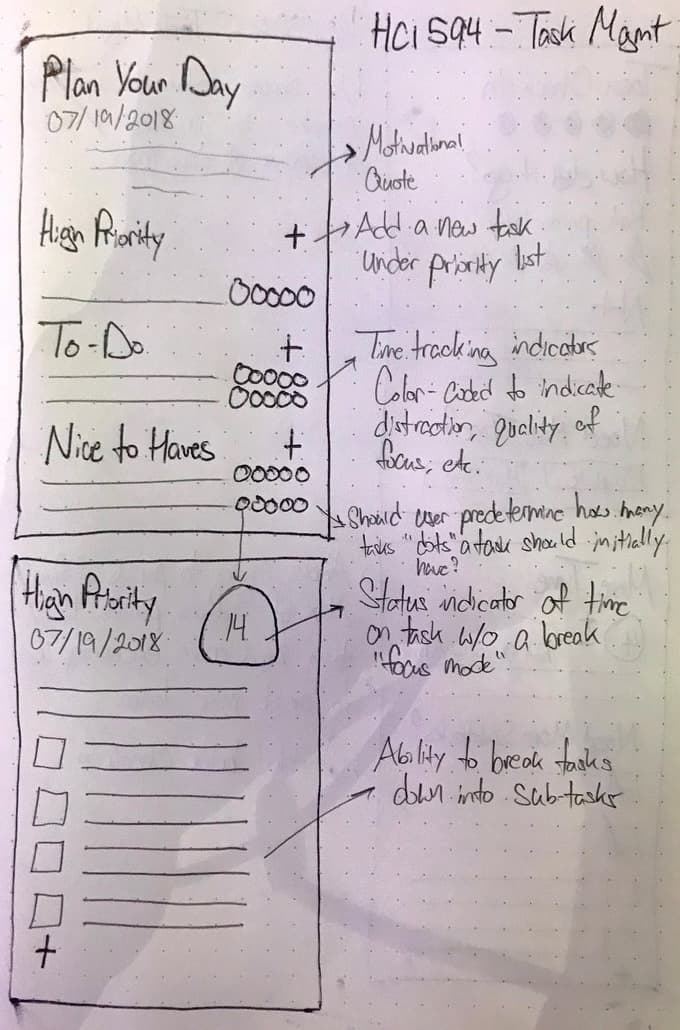 HCI 594 - Task Mgmt
Plan Your Day
07/19/2018
Motivational
Quote
High Priority +
Add a new task
under priority list
To-Do +
Time tracking indicators
Color-coded to indicate
distraction, quality of
focus, etc.
Nice to Haves +
Should user predetermine how many
tasks "dots" a task should initially
have?
High Priority
07/19/2018
14
Status indicator of time
on task w/o a break
"focus mode"
Ability to break tasks
down into sub-tasks
+